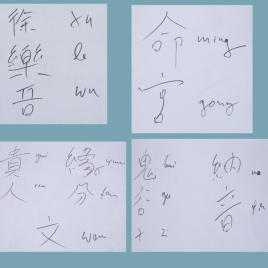 徐 xu
樂 le
吾 wu
命 ming
宮 gong
貴 gui 緣 yuan
人 ren 分 fen
文 wen
鬼 gui 納 na
谷 gu 音 yin
子 zi